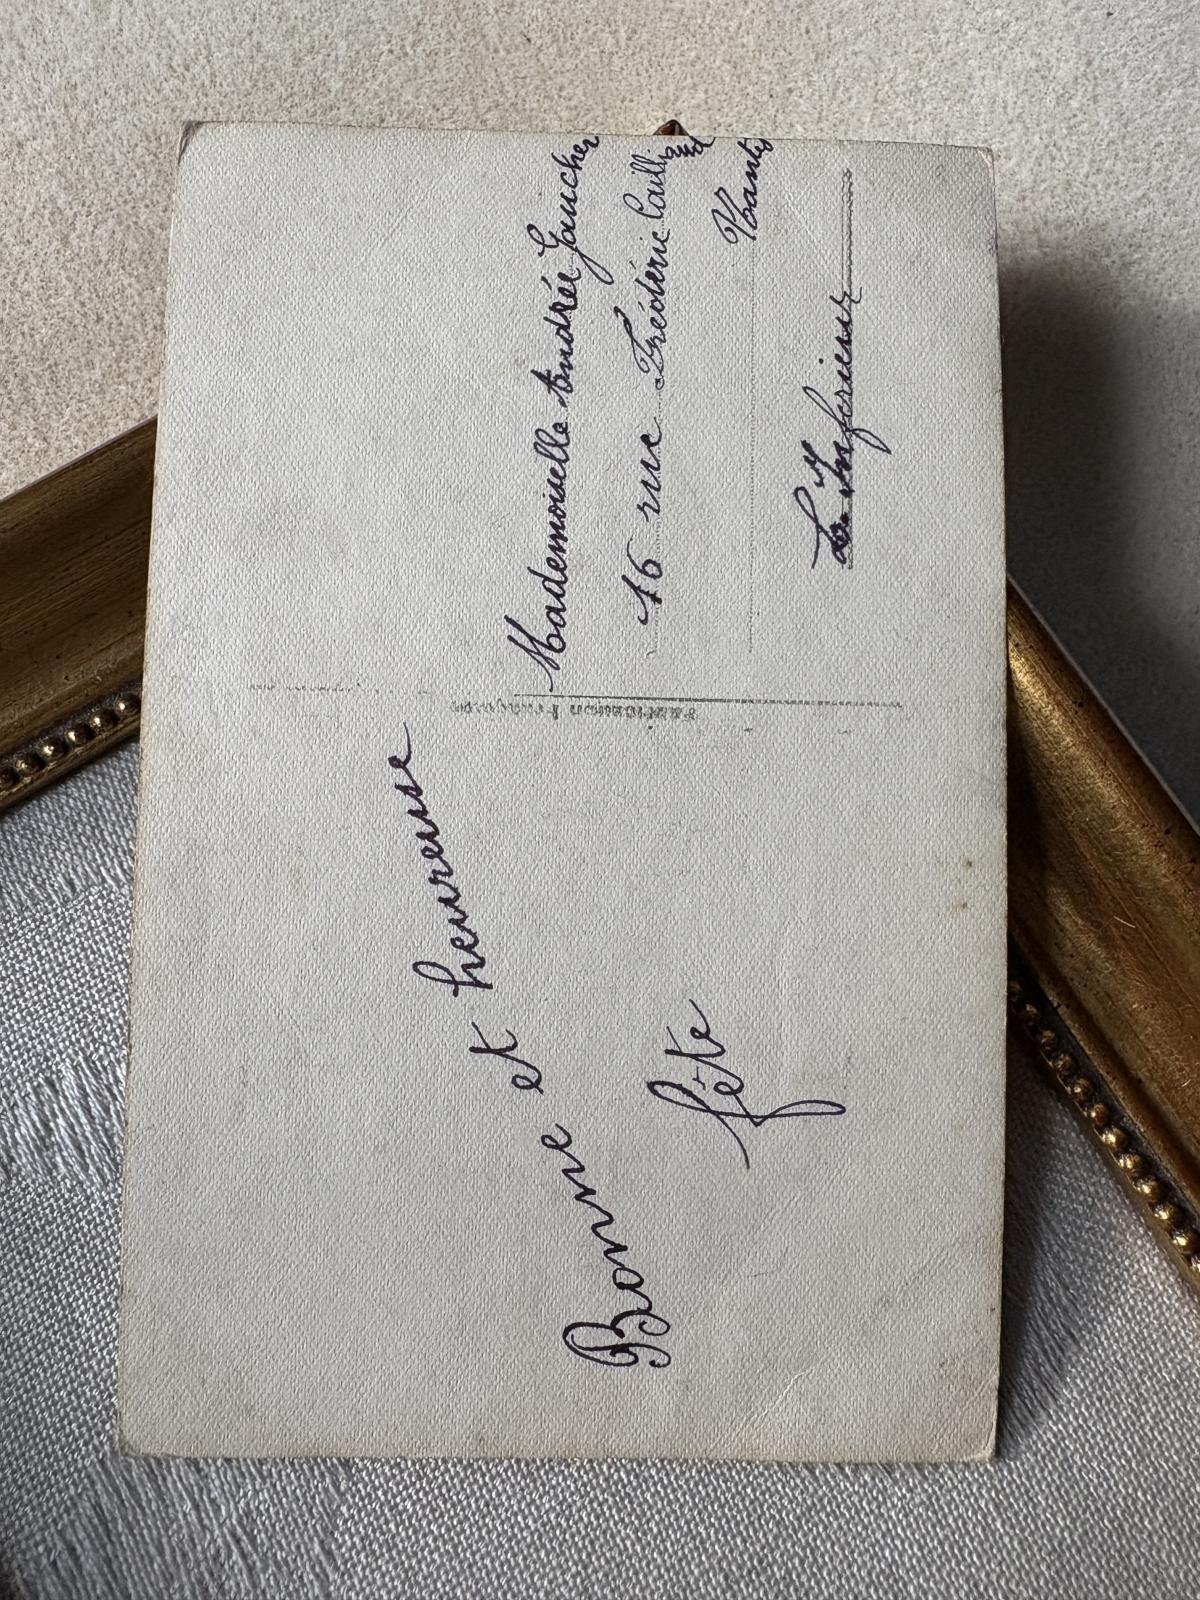 Bonne et heureuse
fête
Fabrication Française
Mademoiselle Andrée Gaucher
16 rue Frédéric Cailliaud
Nantes
Lre Inférieure